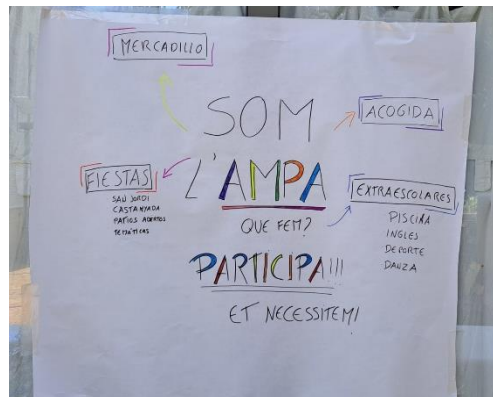 MERCADILLO
SOM
ACOGIDA
L'AMPA
FIESTAS
SAN JORDI
CASTANYADA
PATIOS ABIERTOS
TEMÁTICAS
EXTRAESCOLARES
PISCINA
INGLES
DEPORTE
DANZA
QUE FEM?
PARTICIPA!!!
ET NECESSITEM!